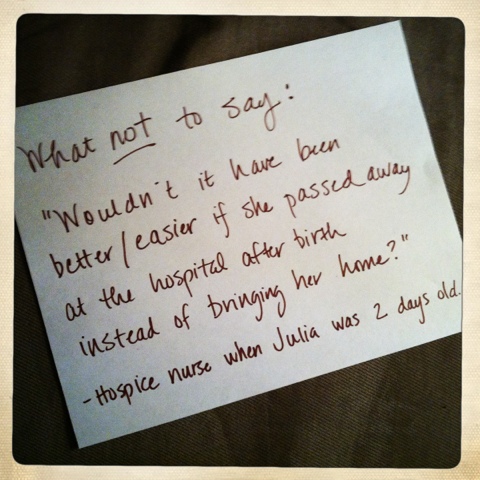 What not to say:
"Wouldn't it have been
better/easier if she passed away
at the hospital after birth
instead of bringing her home?"
-Hospice nurse when Julia was 2 days old.